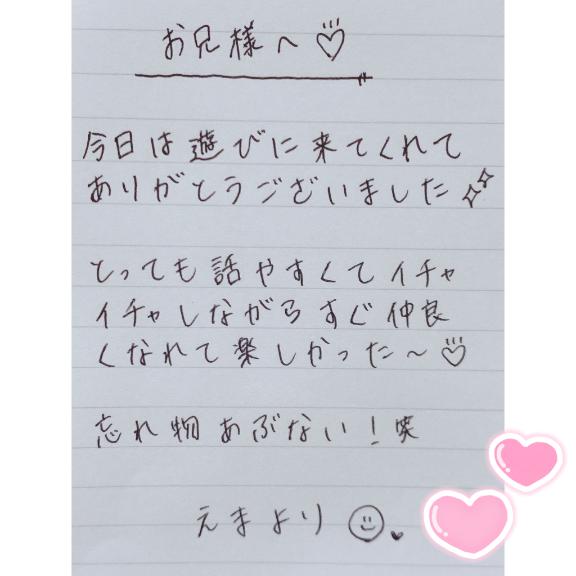 お兄様へ♡
今日は遊びに来てくれて
ありがとうございました
とっても話やすくてイチャ
イチャしながらすぐ仲良
くなれて楽しかった〜♡
忘れ物あぶない！笑
えまより